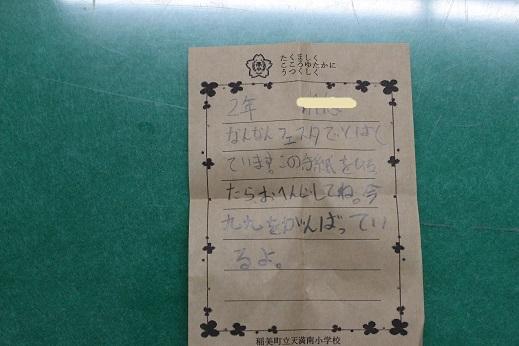 たくましく
こころゆたかに
うつくしく
2年
なんなんフェスタでとばし
ています。この手紙をひろっ
たらおへんじしてね。今
九九をがんばってい
るよ。
稲美町立天満南小学校